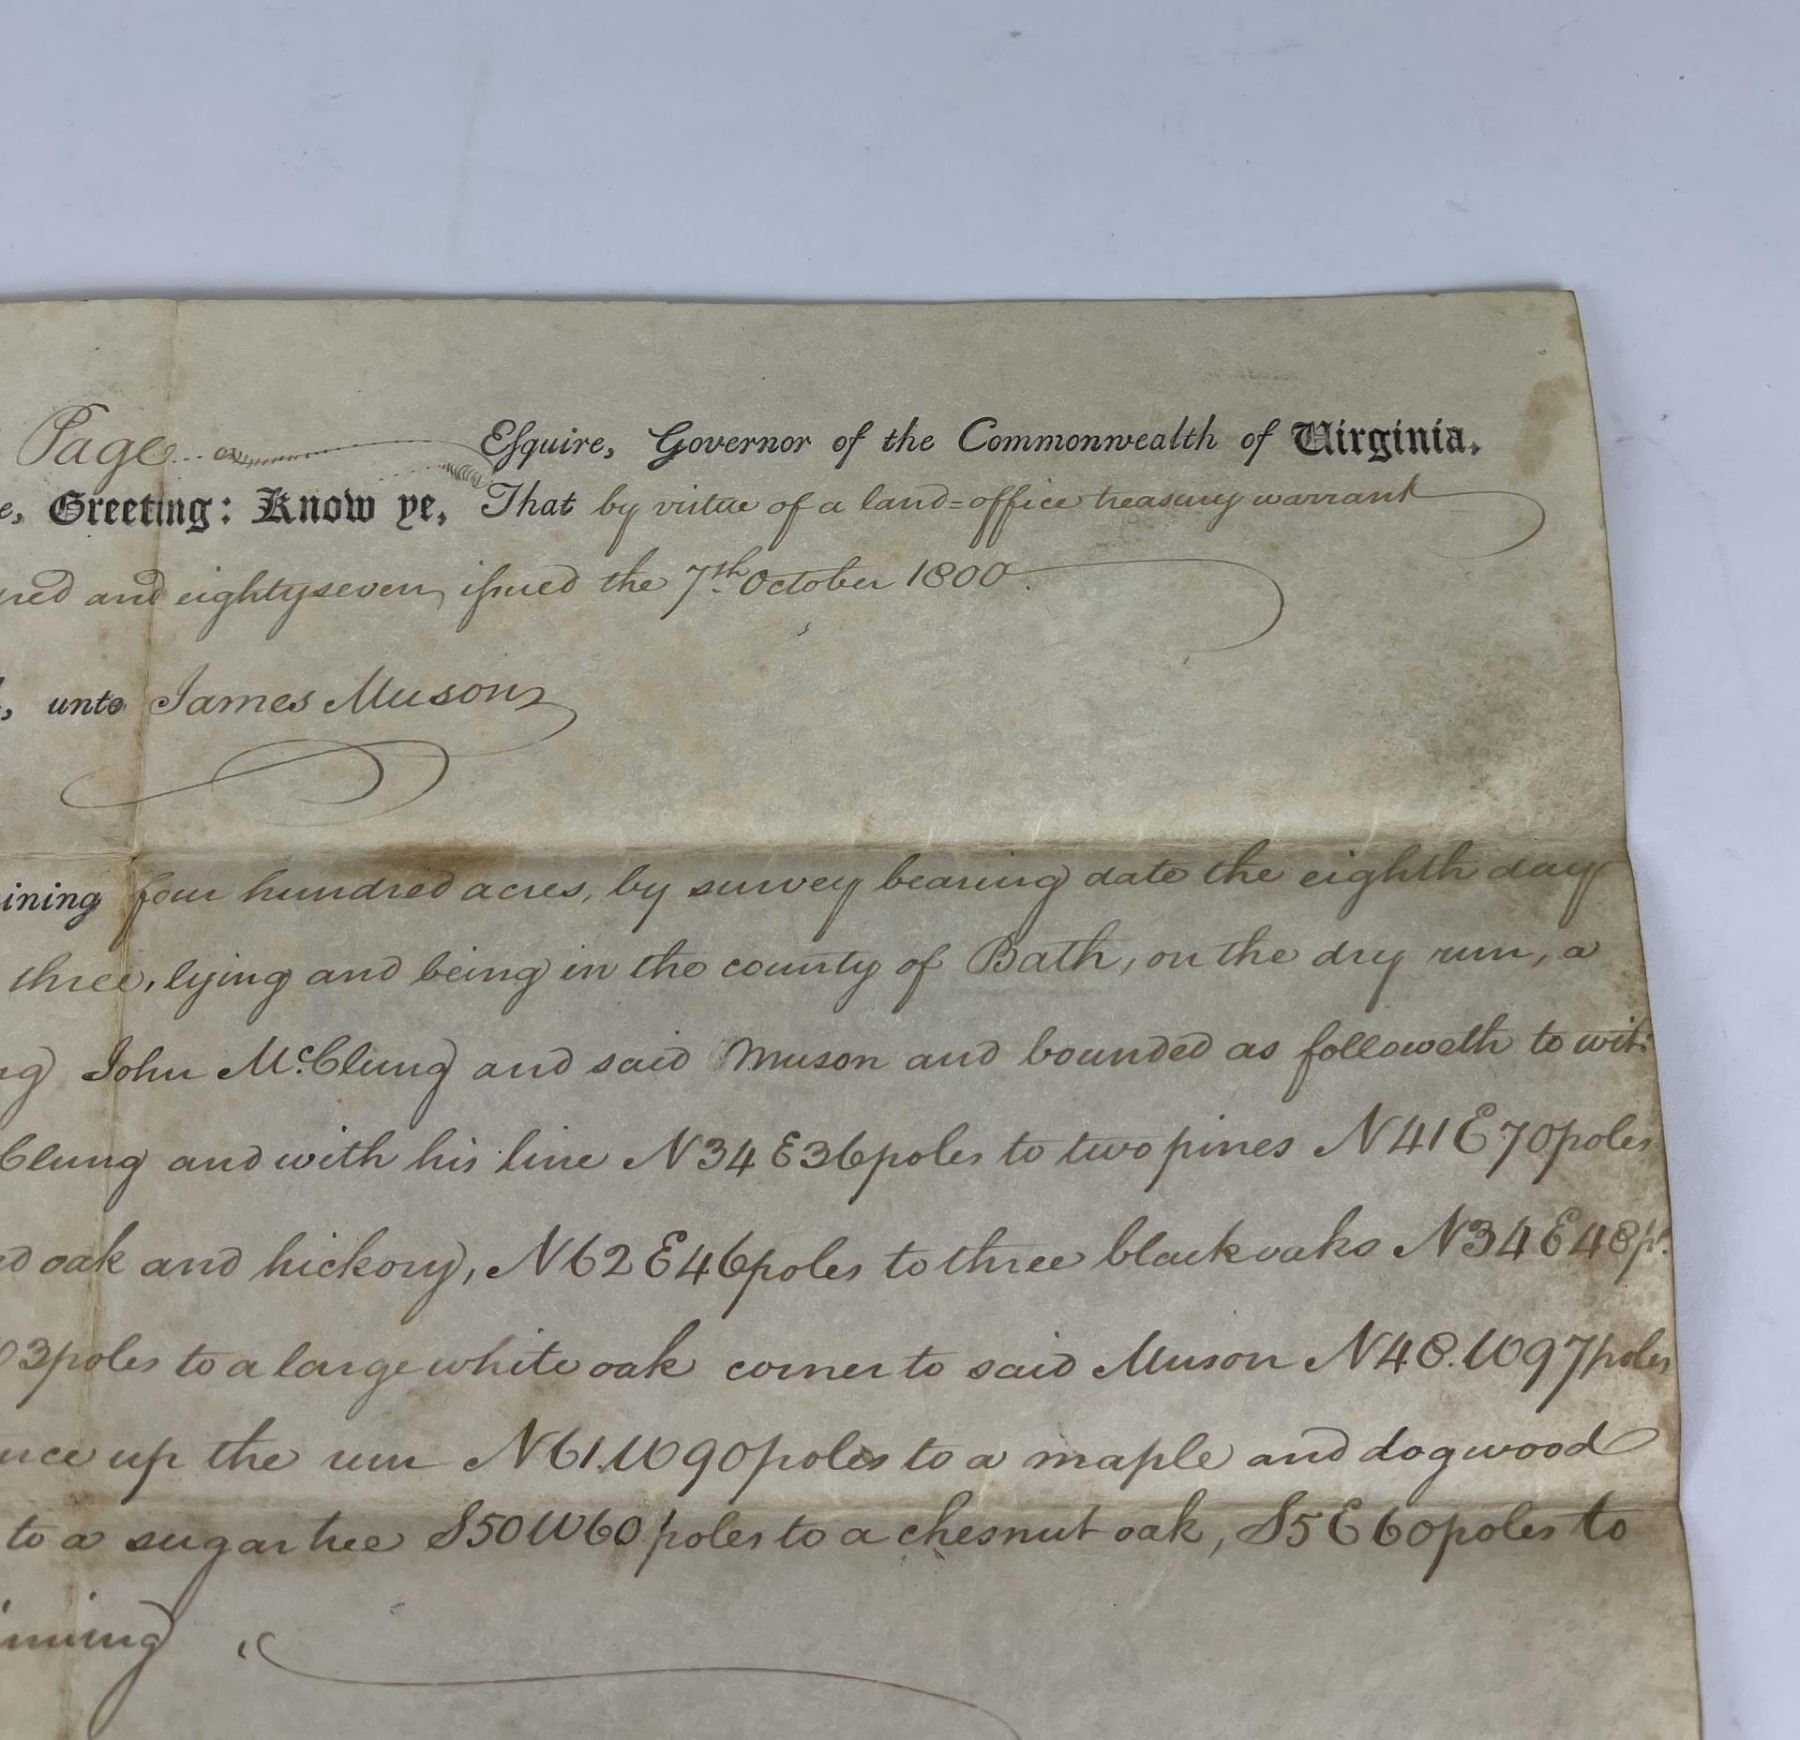 Page Esquire, Governor of the Commonwealth of Virginia.
Greeting: Know ye, That by virtue of a land=office treasury warrant
and eightyseven, issued the 7th. October 1800.
unto James Muson
four hundred acres, by survey bearing date the eighth day
three, lying and being in the county of Bath, on the dry run, a
John McClung and said Muson and bounded as followeth to wit:
Clung and with his line N34 E36poles to two pines N41E70poles
oak and hickory, N62E46poles to three black oaks N34E48ps.
3poles to a large white oak corner to said Muson N48.W97poles
up the run N61.W90poles to a maple and dogwood
to a sugar tree S50W60poles to a chesnut oak, S5E60poles to